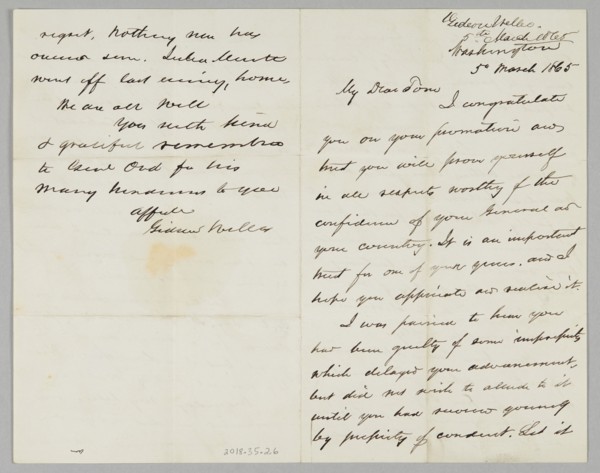 Gideon Welles.
5th March 1865
Washington
5o March 1865
My Dear Tom
I congratulate
you on your promotion and
trust you will prove yourself
in all respects worthy of the
confidence of your General and
your country. It is an important
trust for one of your years, and I
hope you appreciate and realize it.
I was pained to hear you
had been guilty of some impropriety
which delayed your advancement,
but did not wish to allude to it
until you had
by propriety of conduct. Let it
regret. Nothing new has
occurred since.
went off last evening, home.
We are all well
You with kind
& grateful remembrance
to Genl Ord for his
many kindnesses to you
Affte
Gideon Welles
2018.35.26